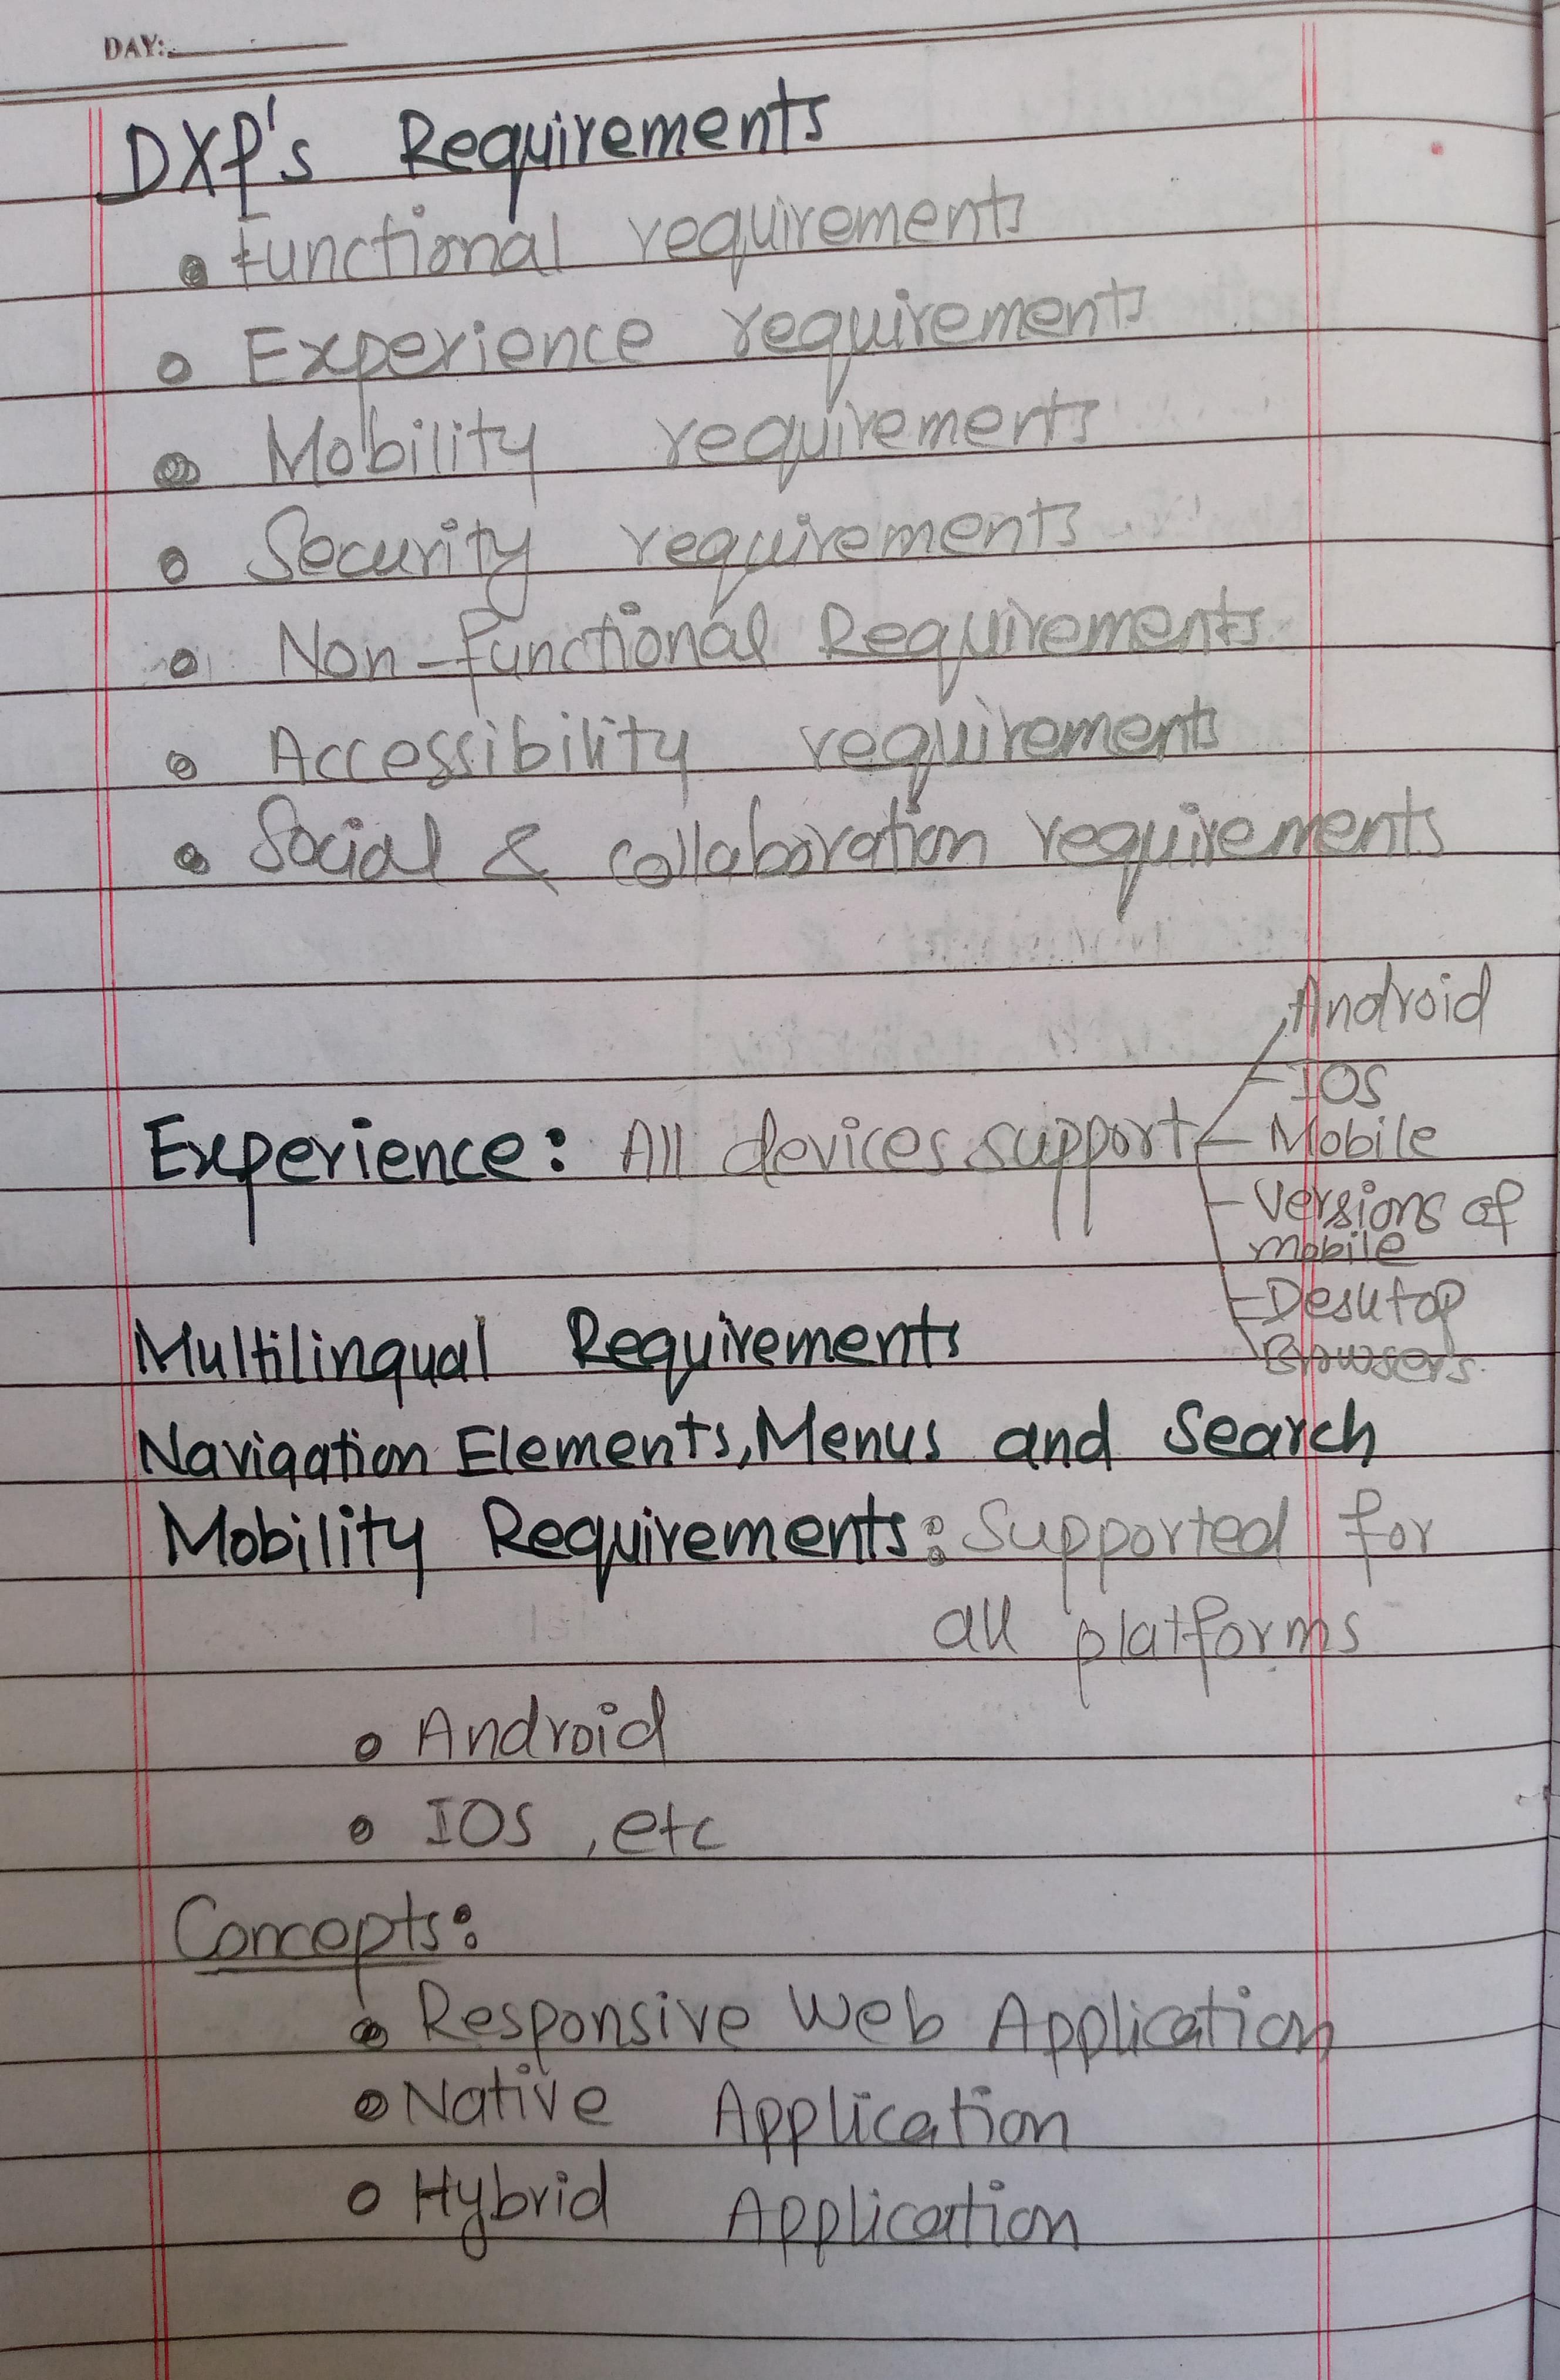 DAY:
DXP's Requirements
Functional requirements
Experience requirements
Mobility requirements
Security requirements
Non-functional Requirements
Accessibility requirements
Social & collaboration requirements
Experience: All devices support
Android
IOS
Mobile
Versions of
mobile
Desktop
Browsers.
Multilingual Requirements
Navigation Elements, Menus and Search
Mobility Requirements: Supported for
all platforms
Android
IOS, etc
Concepts:
Responsive Web Application
Native Application
Hybrid Application